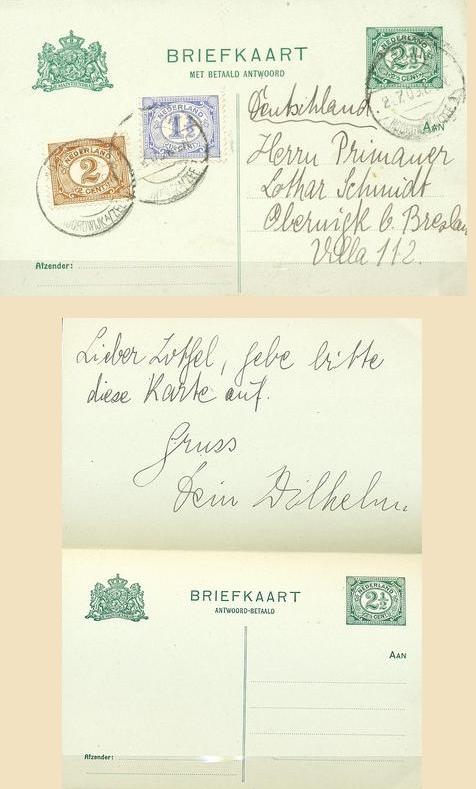 BRIEFKAART
MET BETAALD ANTWOORD
NEDERLAND
2½
Deutschland
AAN
NEDERLAND
1½
NEDERLAND
2
(2 CENT)
NOORDWIJK A/ZEE
Herrn Primaner
Lothar Schmidt
Obernigk b. Breslau
Villa 112.
Afzender:
Lieber Lothel, gebe bitte
diese Karte auf.
Gruss
Dein Wilhelm.
BRIEFKAART
ANTWOORD-BETAALD
NEDERLAND
2½
AAN
Afzender: